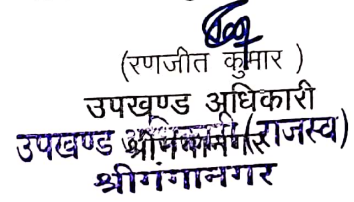 (रणजीत कुमार )
उपखण्ड अधिकारी
उपखण्ड अधिकारी (राजस्व)
श्रीगंगानगर
श्रीगंगानगर